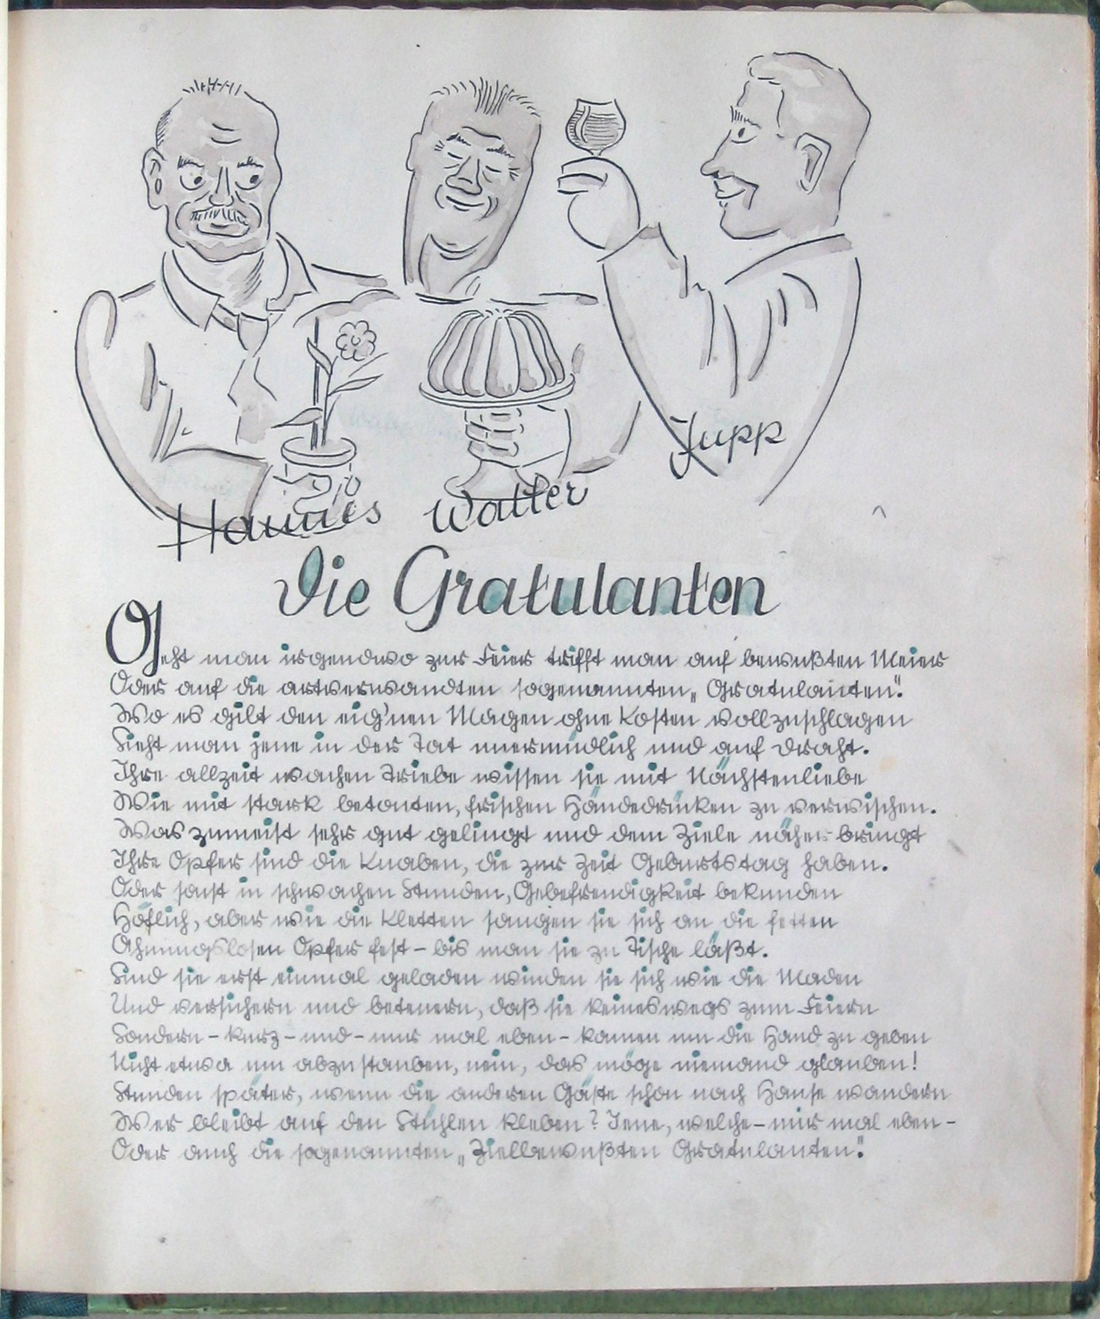 Jupp
Hannes Walter
Die Gratulanten
Geht man irgendwo zur Feier trifft man auf bewußten Meier
Oder auf die artverwandten sogenannten „Gratulanten“.
Wo es gilt den eig'nen Magen ohne Kosten vollzuschlagen
Sieht man jene in der Tat unermüdlich und auf Draht.
Ihre allzeit wachen Triebe wissen sie mit Nächstenliebe
Wie mit stark betonten, frischen Händedrücken zu verwischen.
Was zumeist sehr gut gelingt und dem Ziele näher bringt
Ihre Opfer sind die Knaben, die zur Zeit Geburtstag haben.
Oder sonst in schwachen Stunden, Gebefreudigkeit bekunden
Höflich, aber wie die Kletten saugen sie sich an die fetten
Ahnungslosen Opfer fest – bis man sie zu Tische läßt.
Sind sie erst einmal geladen winden sie sich wie die Maden
Und versichern und beteuern, daß sie keineswegs zum Feiern
Sondern – kurz – und – nur mal eben – kamen um die Hand zu geben
Nicht etwa um abzustauben, nein, das möge niemand glauben!
Stunden später, wenn die anderen Gäste schon nach Hause wandern
Wer bleibt auf den Stühlen kleben? Jene, welche – nur mal eben –
Oder auch die sogenannten „Zielbewußten Gratulanten“.